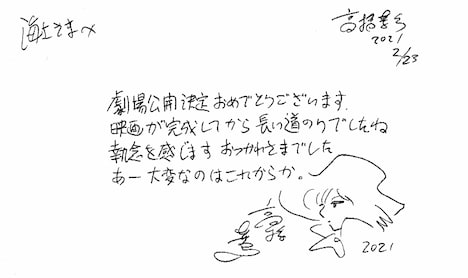 海上さまへ
2021
2/23
劇場公開決定おめでとうございます.
映画が完成してから長い道のりでしたね
執念を感じます おつかれさまでした
あー大変なのはこれからか。
2021